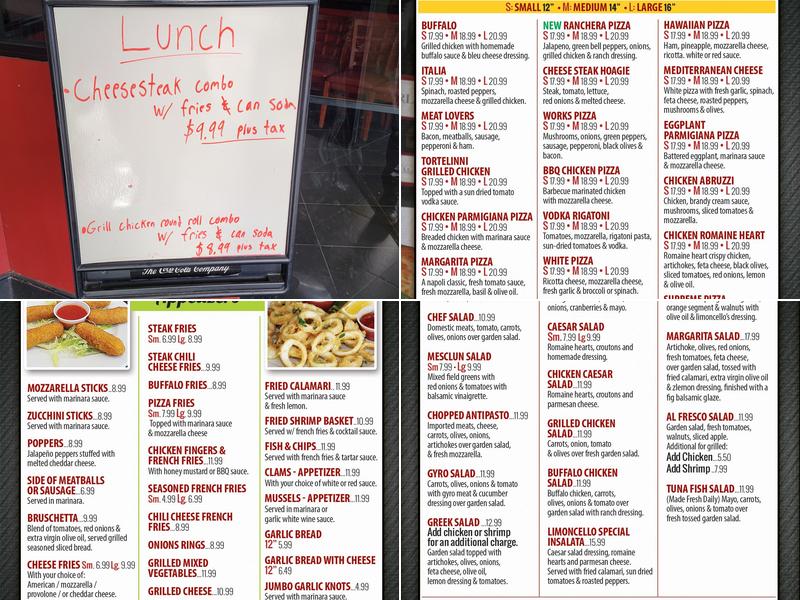 Lunch
• Cheesesteak combo
w/ fries & can soda
$9.99 plus tax
• Grill chicken round roll combo
w/ fries & can soda
$8.99 plus tax
The Coca-Cola Company
S: SMALL 12" • M: MEDIUM 14" • L: LARGE 16"
BUFFALO
S 17.99 • M 18.99 • L 20.99
Grilled chicken with homemade
buffalo sauce & bleu cheese dressing.
ITALIA
S 17.99 • M 18.99 • L 20.99
Spinach, roasted peppers,
mozzarella cheese & grilled chicken.
MEAT LOVERS
S 17.99 • M 18.99 • L 20.99
Bacon, meatballs, sausage,
pepperoni & ham.
TORTELINNI
GRILLED CHICKEN
S 17.99 • M 18.99 • L 20.99
Topped with a sun dried tomato
vodka sauce.
CHICKEN PARMIGIANA PIZZA
S 17.99 • M 18.99 • L 20.99
Breaded chicken with marinara sauce
& mozzarella cheese.
MARGARITA PIZZA
S 17.99 • M 18.99 • L 20.99
A napoli classic, fresh tomato sauce,
fresh mozzarella, basil & olive oil.
NEW RANCHERA PIZZA
S 17.99 • M 18.99 • L 20.99
Jalapeno, green bell peppers, onions,
grilled chicken & ranch dressing.
CHEESE STEAK HOAGIE
S 17.99 • M 18.99 • L 20.99
Steak, tomato, lettuce,
red onions & melted cheese.
WORKS PIZZA
S 17.99 • M 18.99 • L 20.99
Mushrooms, onions, green peppers,
sausage, pepperoni, black olives &
bacon.
BBQ CHICKEN PIZZA
S 17.99 • M 18.99 • L 20.99
Barbecue marinated chicken
with mozzarella cheese.
VODKA RIGATONI
S 17.99 • M 18.99 • L 20.99
Tomatoes, mozzarella, rigatoni pasta,
sun-dried tomatoes & vodka.
WHITE PIZZA
S 17.99 • M 18.99 • L 20.99
Ricotta cheese, mozzarella cheese,
fresh garlic & broccoli or spinach.
HAWAIIAN PIZZA
S 17.99 • M 18.99 • L 20.99
Ham, pineapple, mozzarella cheese,
ricotta. white or red sauce.
MEDITERRANEAN CHEESE
S 17.99 • M 18.99 • L 20.99
White pizza with fresh garlic, spinach,
feta cheese, roasted peppers,
mushrooms & olives.
EGGPLANT
PARMIGIANA PIZZA
S 17.99 • M 18.99 • L 20.99
Battered eggplant, marinara sauce
& mozzarella cheese.
CHICKEN ABRUZZI
S 17.99 • M 18.99 • L 20.99
Chicken, brandy cream sauce,
mushrooms, sliced tomatoes &
mozzarella.
CHICKEN ROMAINE HEART
S 17.99 • M 18.99 • L 20.99
Romaine heart crispy chicken,
artichokes, feta cheese, black olives,
sliced tomatoes, red onions, lemon
& olive oil.
SUPREME PIZZA
Appetizers
MOZZARELLA STICKS...8.99
Served with marinara sauce.
ZUCCHINI STICKS...8.99
Served with marinara sauce.
POPPERS...8.99
Jalapeño peppers stuffed with
melted cheddar cheese.
SIDE OF MEATBALLS
OR SAUSAGE...6.99
Served in marinara.
BRUSCHETTA...9.99
Blend of tomatoes, red onions &
extra virgin olive oil, served grilled
seasoned sliced bread.
CHEESE FRIES Sm. 6.99 Lg. 9.99
With your choice of:
American / mozzarella /
provolone / or cheddar cheese.
STEAK FRIES
Sm. 6.99 Lg. 8.99
STEAK CHILI
CHEESE FRIES...9.99
BUFFALO FRIES...8.99
PIZZA FRIES
Sm. 7.99 Lg. 9.99
Topped with marinara sauce
& mozzarella cheese
CHICKEN FINGERS &
FRENCH FRIES...11.99
With honey mustard or BBQ sauce.
SEASONED FRENCH FRIES
Sm. 4.99 Lg. 6.99
CHILI CHEESE FRENCH
FRIES...8.99
ONIONS RINGS...8.99
GRILLED MIXED
VEGETABLES...11.99
GRILLED CHEESE...10.99
FRIED CALAMARI...11.99
Served with marinara sauce
& fresh lemon.
FRIED SHRIMP BASKET...10.99
Served w/ french fries & cocktail sauce.
FISH & CHIPS...11.99
Served with french fries & tartar sauce.
CLAMS - APPETIZER...11.99
With your choice of white or red sauce.
MUSSELS - APPETIZER...11.99
Served in marinara or
garlic white wine sauce.
GARLIC BREAD
12" 5.99
GARLIC BREAD WITH CHEESE
12" 6.49
JUMBO GARLIC KNOTS...4.99
Served with marinara sauce.
CHEF SALAD...10.99
Domestic meats, tomato, carrots,
olives, onions over garden salad.
MESCLUN SALAD
Sm 7.99 - Lg 9.99
Mixed field greens with
red onions & tomatoes with
balsamic vinaigrette.
CHOPPED ANTIPASTO...11.99
Imported meats, cheese,
carrots, olives, onions,
artichokes over garden salad,
& fresh mozzarella.
GYRO SALAD...11.99
Carrots, olives, onions & tomato
with gyro meat & cucumber
dressing over garden salad.
GREEK SALAD...12.99
Add chicken or shrimp
for an additional charge.
Garden salad topped with
artichokes, olives, onions,
feta cheese, olive oil,
lemon dressing & tomatoes.
onions, cranberries & mayo.
CAESAR SALAD
Sm. 7.99 Lg 9.99
Romaine hearts, croutons and
homemade dressing.
CHICKEN CAESAR
SALAD...11.99
Romaine hearts, croutons and
parmesan cheese.
GRILLED CHICKEN
SALAD...11.99
Carrots, onion, tomato
& olives over fresh garden salad.
BUFFALO CHICKEN
SALAD...11.99
Buffalo chicken, carrots,
olives, onions & tomato over
garden salad with ranch dressing.
LIMONCELLO SPECIAL
INSALATA...15.99
Caesar salad dressing, romaine
hearts and parmesan cheese.
Served with fried calamari, sun dried
tomatoes & roasted peppers.
orange segment & walnuts with
olive oil & limoncello's dressing.
MARGARITA SALAD...17.99
Artichoke, olives, red onions,
fresh tomatoes, feta cheese,
over garden salad, tossed with
fried calamari, extra virgin olive oil
& lemon dressing, finished with a
fig balsamic glaze.
AL FRESCO SALAD...11.99
Garden salad, fresh tomatoes,
walnuts, sliced apple.
Additional for grilled:
Add Chicken...5.50
Add Shrimp...7.99
TUNA FISH SALAD...11.99
(Made Fresh Daily) Mayo, carrots,
olives, onions & tomato over
fresh tossed garden salad.